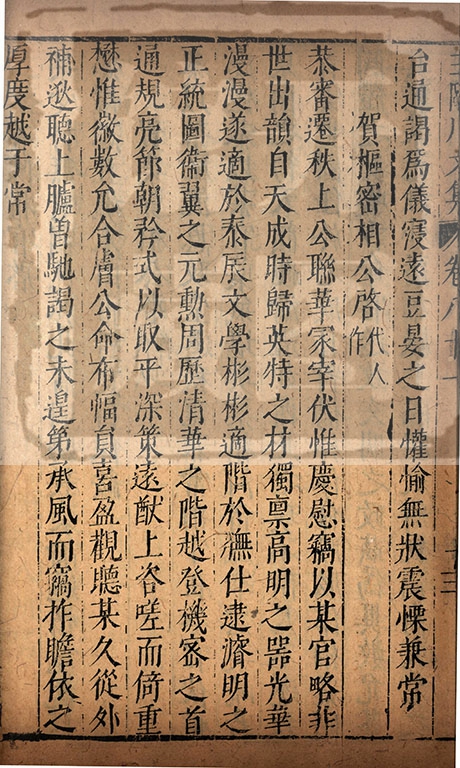 台通謁爲儀寖遠豆晏之日懽愉無狀震慄兼常
賀樞密相公啓代人作
恭審遷秩上公聯華冡宰伏惟慶慰竊以某官略非
世出韻自天成時歸英特之材獨禀高明之器光華
漫漫遂適於泰辰文學彬彬適階於膴仕逮濬明之
正統圖衞翼之元勲周歷清華之階越登機密之首
通規亮節朝矜式以取平深策遠猷上咨嗟而倚重
懋惟徽數允合膚公命布幅員喜盈觀聽某久從外
補逖聽上臚曽馳謁之未遑第承風而竊抃瞻依之
厚度越于常